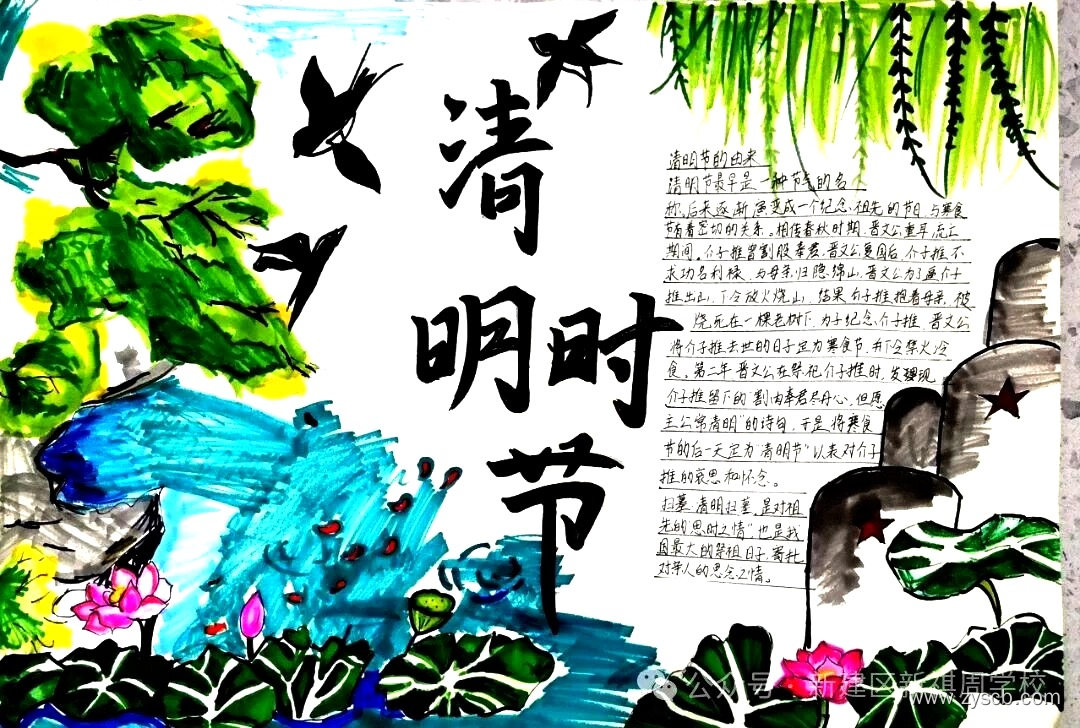 清
明时
节
清明节的由来
清明节最早是一种节气的名
称,后来逐渐演变成一个纪念祖先的节日,与寒食
节有着密切的关系。相传春秋时期,晋文公重耳流亡
期间,介子推曾割股奉君,晋文公复国后,介子推不
求功名利禄,与母亲归隐绵山,晋文公为了逼介子
推出山,下令放火烧山,结果介子推抱着母亲,被
烧死在一棵老树下,为了纪念介子推,晋文公
将介子推去世的日子定为寒食节,并下令禁火冷
食。第二年晋文公在祭祀介子推时,发现
介子推留下的"割肉奉君尽丹心,但愿
主公常清明"的诗句,于是将寒食
节的后一天定为"清明节"以表对介子
推的哀思和怀念。
扫墓:清明扫墓,是对祖
先的"思时之情"也是我
国最大的祭祖日子,寄托
对亲人的思念之情。
公众号·新建区新祺周学校
www.zyssb.com